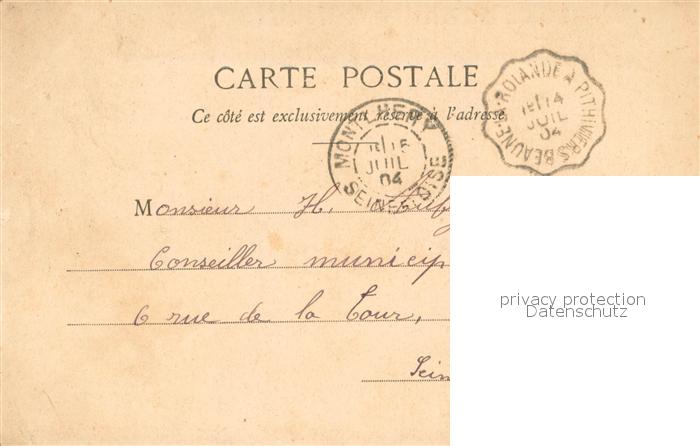 CARTE POSTALE
Ce côté est exclusivement réservé à l'adresse
BEAUNE-LA-ROLANDE A PITHIVIERS
14
JUIL
04
MONTLHERY
15
JUIL
04
SEINE-ET-OISE
Monsieur H.
Conseiller municip
6 rue de la Tour,
Sein
privacy protection
Datenschutz